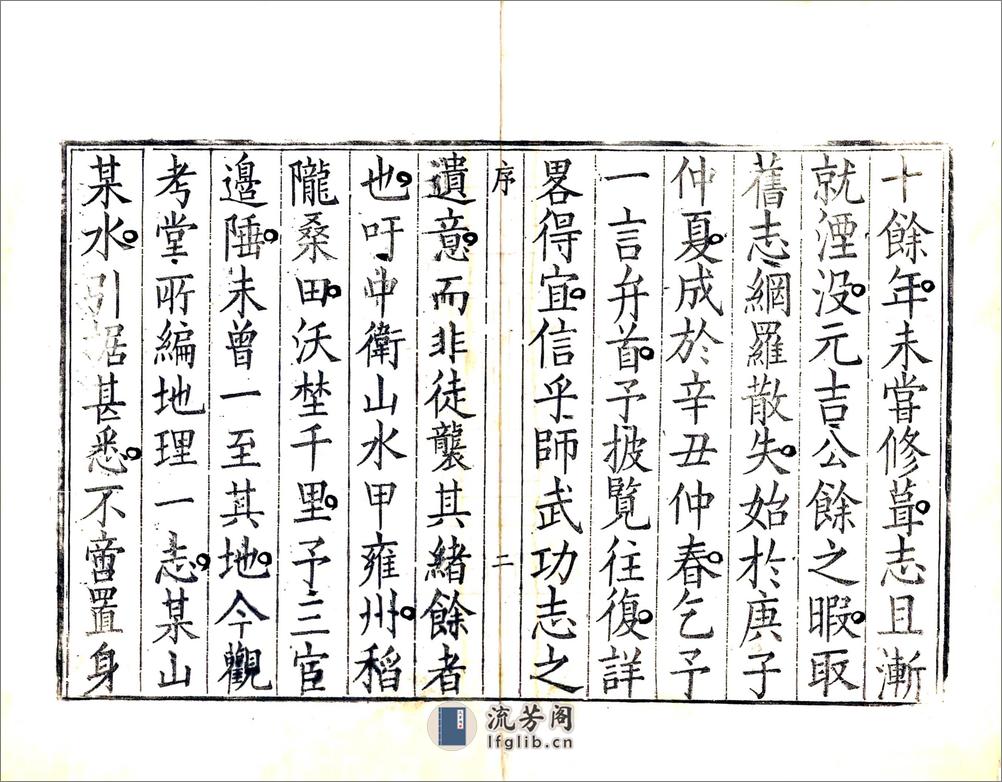 十餘年未嘗修葺志且漸
就湮没元吉公餘之暇取
舊志網羅散失始於庚子
仲夏成於辛丑仲春乞予
一言弁首予披覽往復詳
畧得宜信乎師武功志之
序
二
遺意而非徒襲其緒餘者
也吁中衛山水甲雍州稻
隴桑田沃埜千里予三宦
邊陲未曾一至其地今觀
考堂所編地理一志某山
某水引据甚悉不啻置身
流芳阁
lfglib.cn